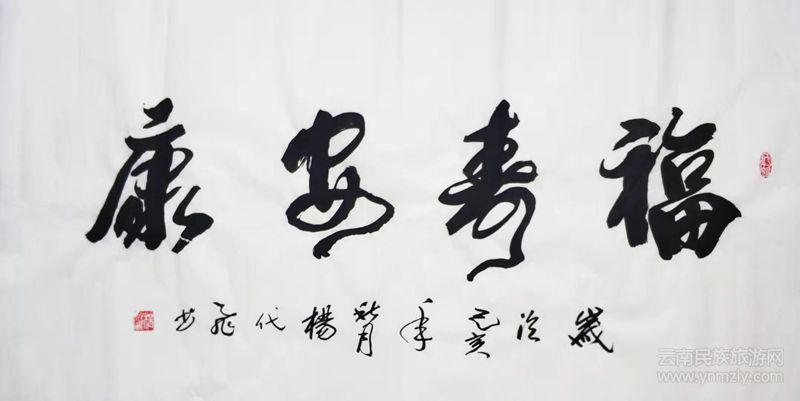 福寿安康
岁次己亥年秋月杨代飞书
云南民族旅游网
www.ynmzly.com